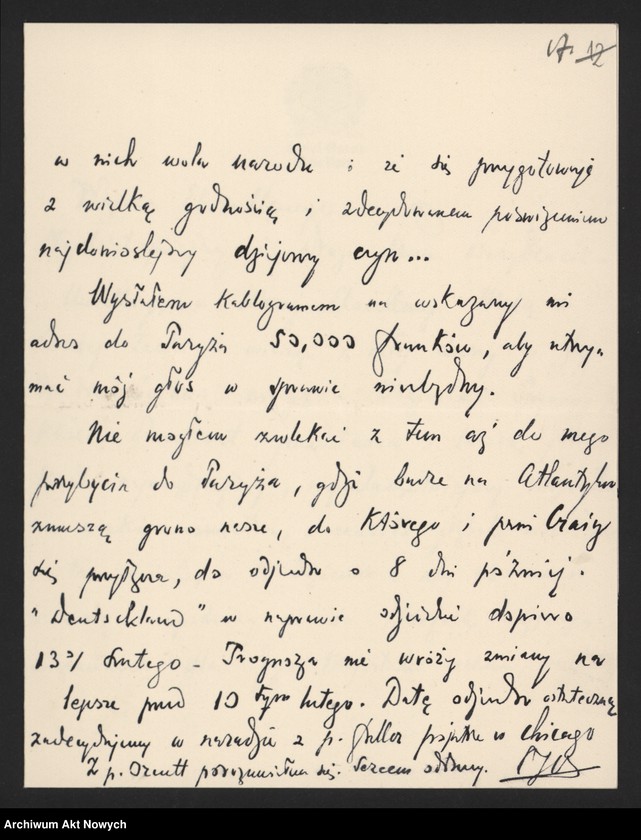 A. 12
w nich wola narodu i że się przygotowuje
z wielką godnością i zdecydowanem poświęceniem
najdonioślejszy dziejowy czyn...
Wysłałem kablogramem na wskazany mi
adres do Paryża 50,000 franków, aby utrzy-
mać mój głos w sprawie niezbędny.
Nie mogłem zwlekać z tem aż do mego
przybycia do Paryża, gdyż burze na Atlantyku
zmuszą grono nasze, do którego i pani
się przyłącza, do odjazdu o 8 dni później.
"Deutschland" w naprawie odjeżdża dopiero
13 lutego - Prognoza nie wróży zmiany na
lepsze przed 10 tym lutego. Datę odjazdu ostateczną
zadecydujemy w naradzie z p. jutro w Chicago
Z p. porozumiałem się. Sercem oddany.